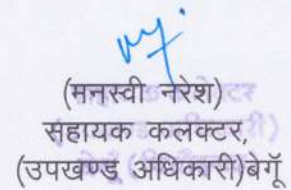 (मनस्वी नरेश)
सहायक कलक्टर,
(उपखण्ड अधिकारी)बेगूॅ